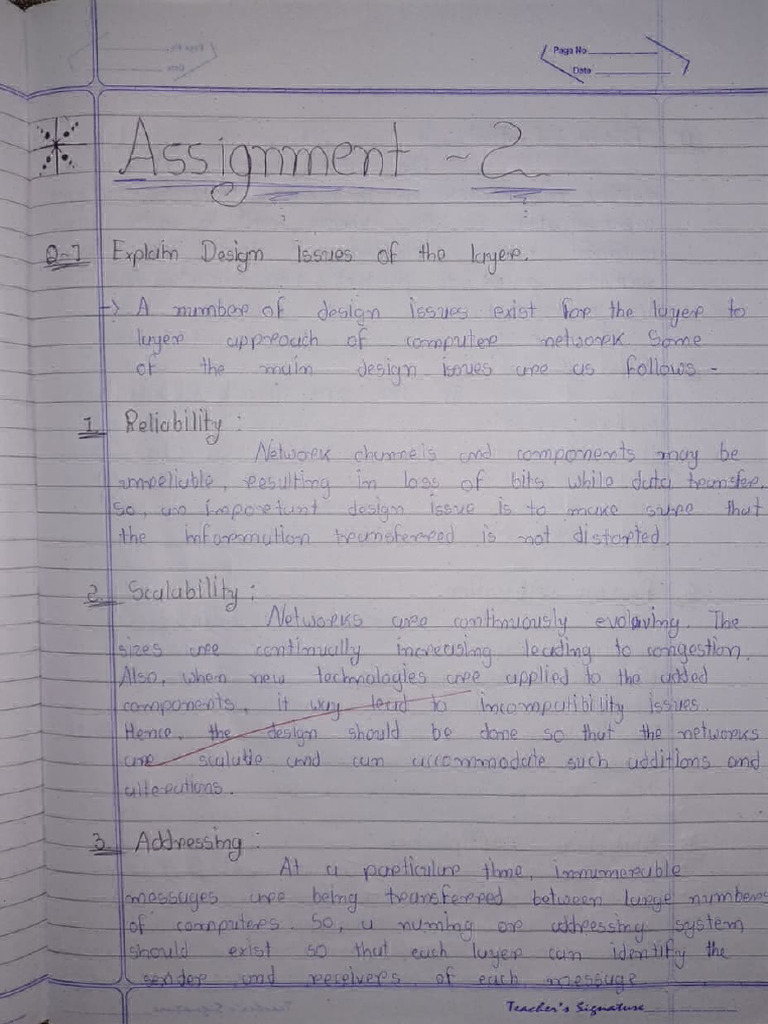 Page No
Date
Assignment - 2
Q-1 Explain Design issues of the layer.
-> A number of design issues exist for the layer to
layer approach of computer network some
of the main design issues are as follows -
1. Reliability :
Network channels and components may be
unreliable, resulting in loss of bits while data transfer.
so, an important design issue is to make sure that
the information transferred is not distorted.
2. Scalability :
Networks are continuously evolving. The
sizes are continually increasing leading to congestion.
Also, when new technologies are applied to the added
components, it may lead to incompatibility issues.
Hence, the design should be done so that the networks
are scalable and can accommodate such additions and
alterations.
3. Addressing :
At a particular time, innumerable
messages are being transferred between large numbers
of computers. So, a naming or addressing system
should exist so that each layer can identify the
sender and receivers of each message.
Teacher's Signature